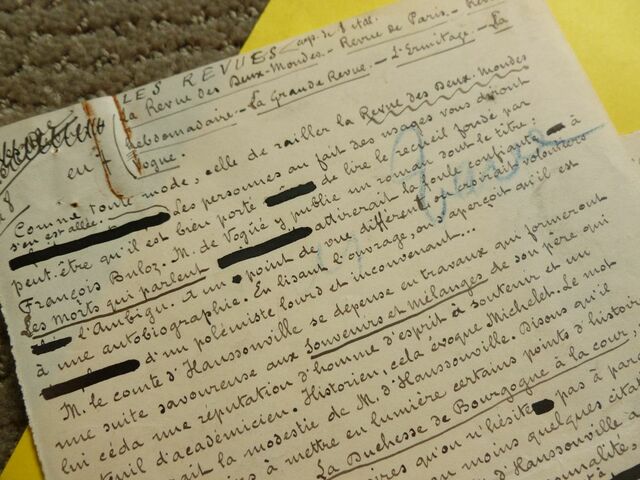 LES REVUES
La Revue des Deux-Mondes - Revue de Paris -
hebdomadaire - La Grande Revue. - L'Ermitage. - La
en 7 Vogue.
Comme toute mode, celle de railler la Revue des Deux Mondes
s'en est allée. Les personnes au fait des usages vous diront
peut-être qu'il est bien porté de lire le recueil fondé par
François Buloz. M. de Vogüé y publie un roman dont le titre:
les morts qui parlent attirerait la foule confiante à
l'Ambigu. A un point de vue différent on croirait volontiers
à une autobiographie. En lisant l'ouvrage, on s'aperçoit qu'il est
d'un polémiste lourd et inconvenant...
M. le comte d'Haussonville se dépense en travaux qui formeront
une suite savoureuse aux Souvenirs et mélanges de son père qui
lui céda une réputation d'homme d'esprit à soutenir et un
d'académicien. Historien, cela évoque Michelet. Le mot
la modestie de M. d'Haussonville. Disons qu'il
à mettre en lumière certains points d'histoire
La Duchesse de Bourgogne à la cour,
qu'on n'hésite pas à
moins quelques
d'Haussonville